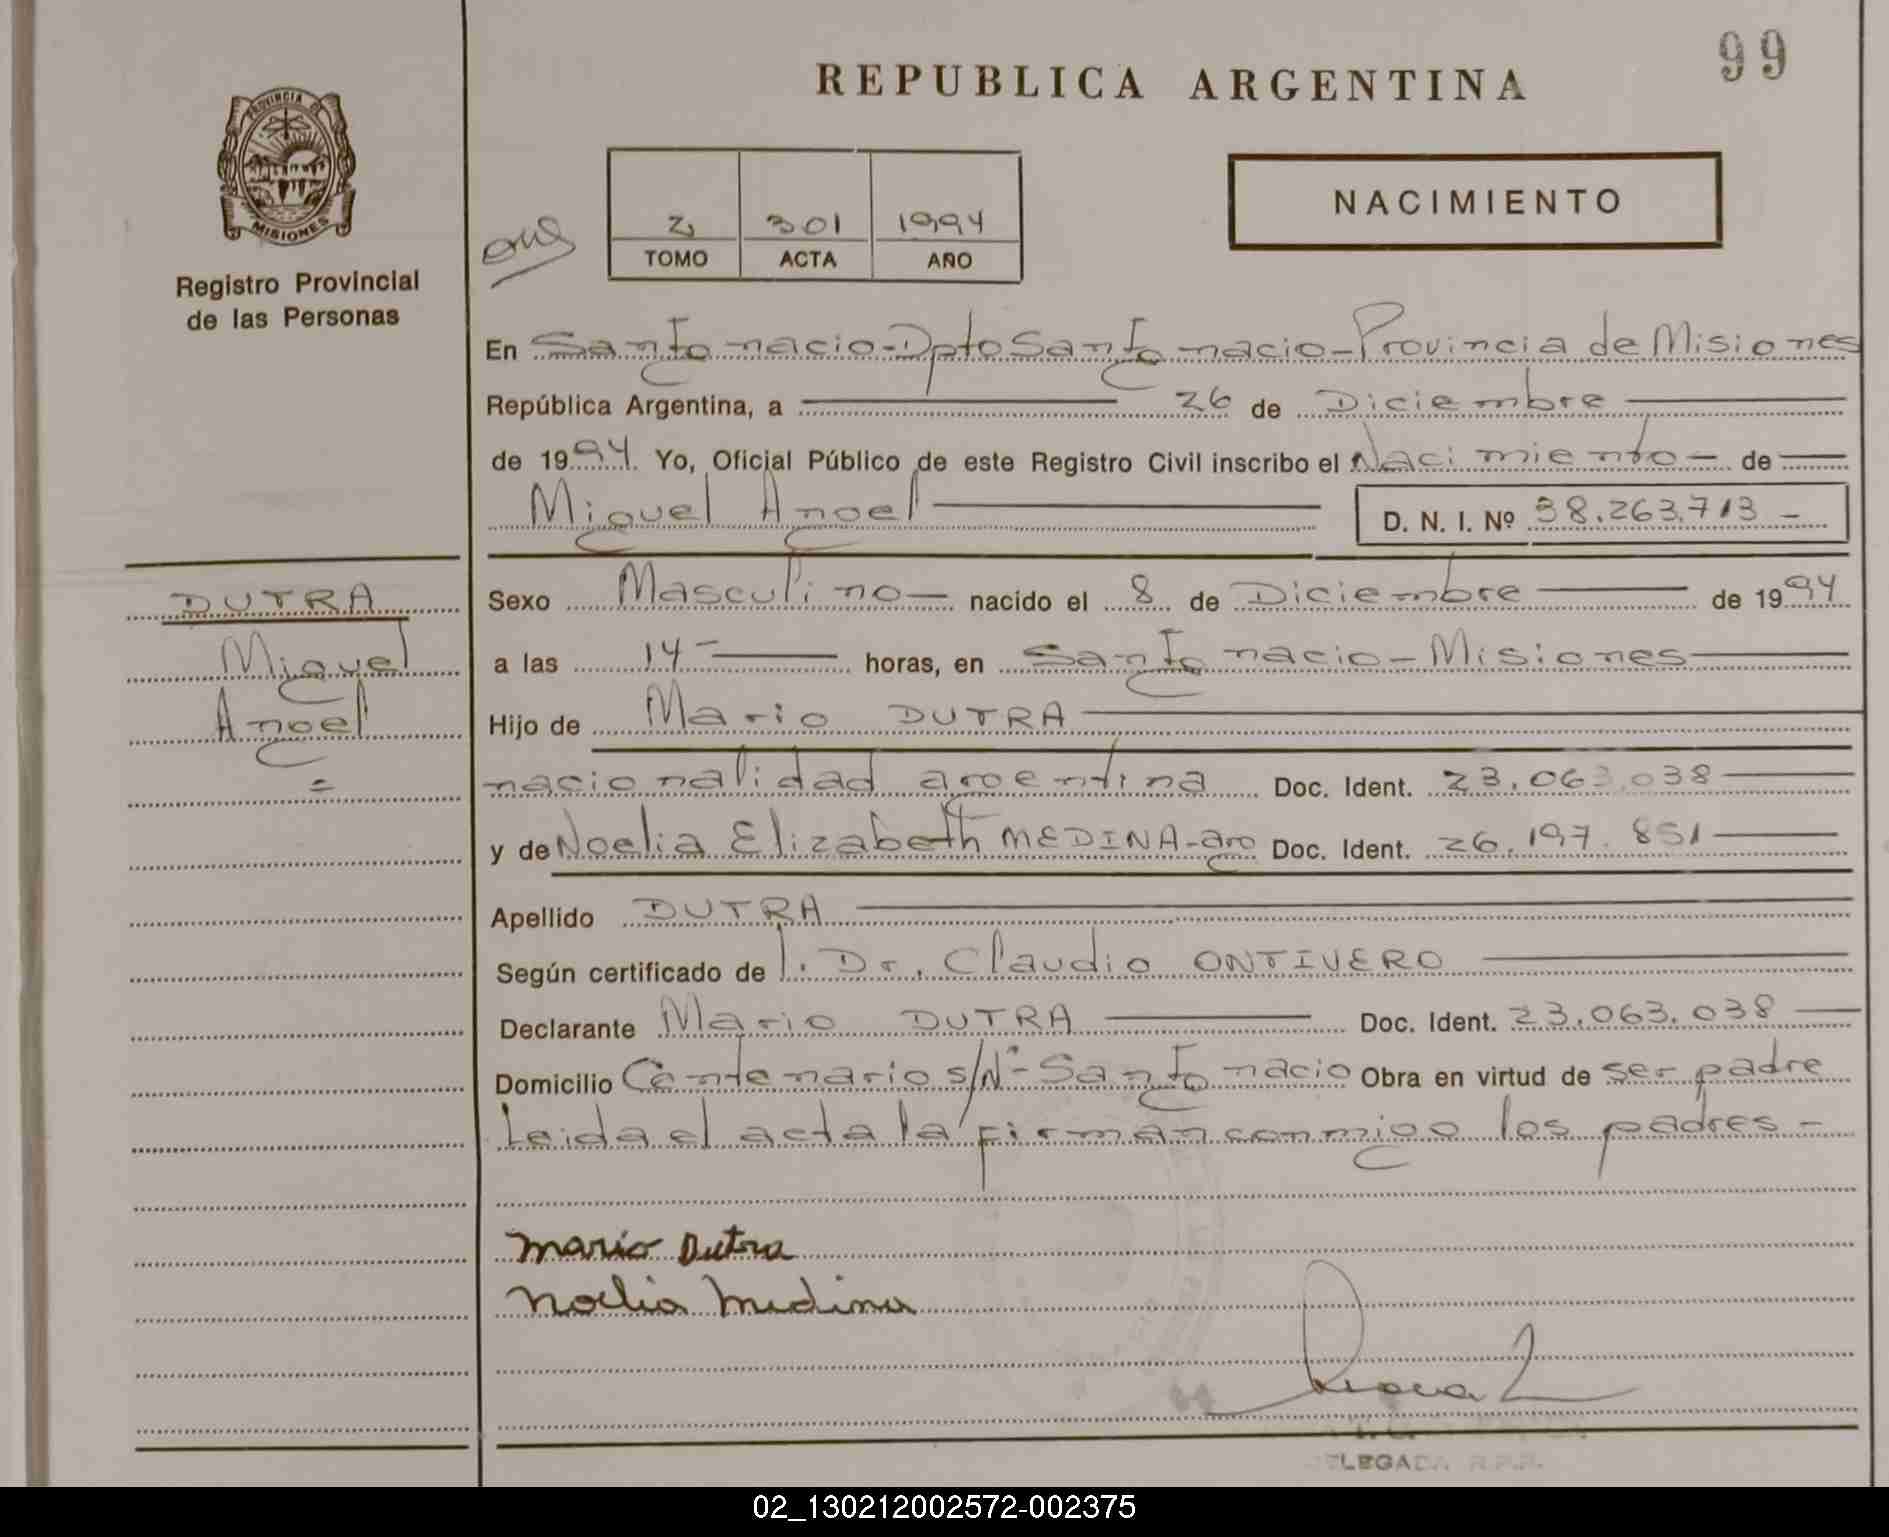 99
REPUBLICA ARGENTINA
PROVINCIA DE
MISIONES
Registro Provincial
de las Personas
2 301 1994
TOMO ACTA AÑO
NACIMIENTO
En San Ignacio - Dpto San Ignacio - Provincia de Misiones
República Argentina, a 26 de Diciembre
de 1994. Yo, Oficial Público de este Registro Civil inscribo el Nacimiento - de
Miguel Angel D. N. I. Nº 38.263.713 -
DUTRA
Miguel
Angel
=
Sexo Masculino - nacido el 8 de Diciembre de 1994
a las 14 - horas, en San Ignacio - Misiones
Hijo de Mario DUTRA
nacionalidad argentina Doc. Ident. 23.063.038
y de Noelia Elizabeth MEDINA - arg Doc. Ident. 26.197.851
Apellido DUTRA
Según certificado de l. Dr. Claudio ONTIVERO
Declarante Mario DUTRA Doc. Ident. 23.063.038
Domicilio Centenario s/Nº - San Ignacio Obra en virtud de ser padre
Leida el acta la firman conmigo los padres -
Mario Dutra
Noelia Medina
DELEGADA R.P.P.
02_130212002572-002375